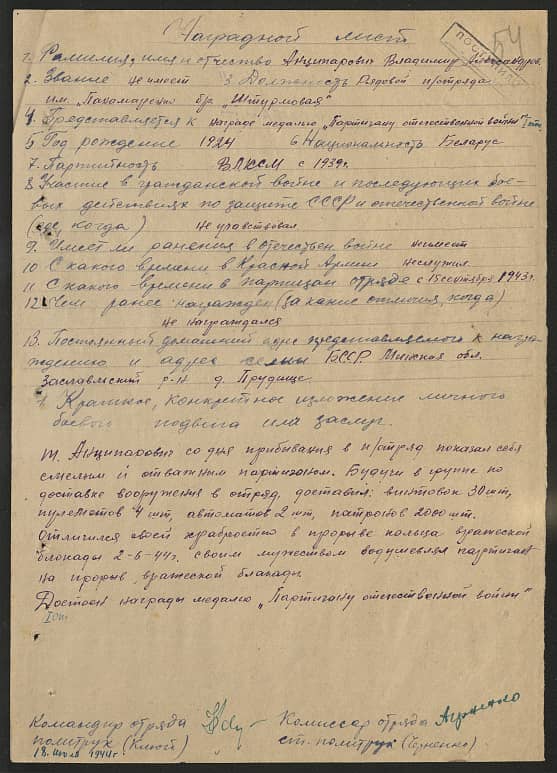 Наградной лист
54
1. Фамилия, имя и отчество Анципарович Владимир Александров.
2. Звание не имеет 3. Должность Рядовой п/отряда
им. Пахамаренко бр. "Штурмовая"
4. Представляется к награде медалью "Партизану отечественной войны" Iст.
5 Год рождение 1924 6 Национальность Беларус
7. Партийность ВЛКСМ с 1939г.
8 Участие в гражданской войне и последующих бое-
вых действиях по защите СССР и отечественной войне
(где, когда) не учавствовал
9. Имеет ли ранения в отечествен. войне не имеет
10 С какого времени в Красной Армии не служил
11 С какого времени в партизан отряде с 15 сентября 1943г.
12. Чем ранее награжден (за какие отличия, когда)
не награждался
13. Постоянный домашний адрес представляемого к награ-
ждению и адрес семьи БССР Минская обл.
Заславльский р-н д. Прудище.
Краткое, конкретное изложение личного
боевого подвига или заслуг.
т. Анципарович со дня прибывания в п/отряд показал себя
смелым и отважным партизаном. Будучи в группе по
доставке вооружения в отряд, доставил: винтовок 30 шт,
пулеметов 4 шт, автоматов 2 шт, патронов 2000 шт.
Отличился своей храбростью в прорыве кольца вражеской
блокады 2-6-44г. своим мужеством водушевлял партизан
на прорыв вражеской блакады.
Достоен награды медалью "Партизану отечественной войны"
Iст.
Командир отряда Комиссар отряда
политрук (Клюй) ст. политрук (Черненко)
18. июля 1944г.